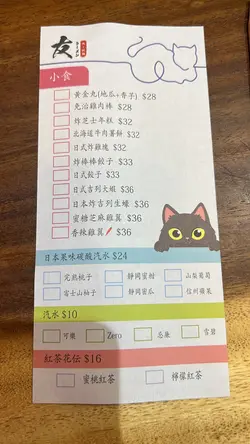 友
小食
黃金丸(地瓜+香芋) $28
免治雞肉棒 $28
炸芝士年糕 $32
北海道牛肉薯餅 $32
日式炸雞塊 $32
炸棒棒餃子 $33
日式餃子 $33
日式吉列大蝦 $36
日本炸吉列生蠔 $36
蜜糖芝麻雞翼 $36
香辣雞翼 $36
日本果味碳酸汽水 $24
完熟桃子 靜岡蜜柑 山梨葡萄
富士山柚子 靜岡蜜瓜 信州蘋果
汽水 $10
可樂 Zero 忌廉 雪碧
紅茶花伝 $16
蜜桃紅茶 檸檬紅茶